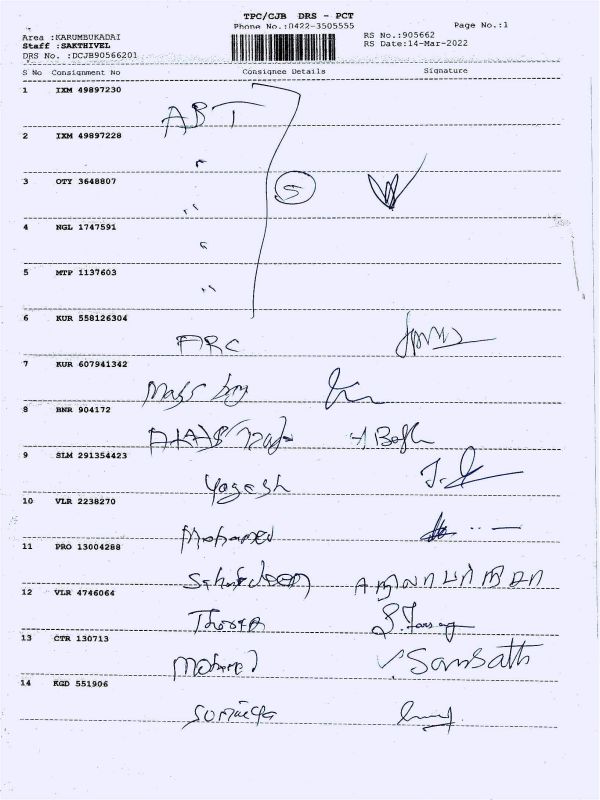 TPC/CJB DRS - PCT
Phone No.:0422-3505555
Page No.:1
Area :KARUMBUKADAI
RS No.:905662
Staff :SAKTHIVEL
RS Date:14-Mar-2022
DRS No. :DCJB90566201
S No Consignment No Consignee Details Signature
1 IXM 49897230
ABT
2 IXM 49897228
"
3 OTY 3648807
5
"
4 NGL 1747591
"
5 MTP 1137603
"
6 KUR 558126304
ARC
7 KUR 607941342
8 BNR 904172
9 SLM 291354423
Yogesh
10 VLR 2238270
Mohamed
11 PRO 13004288
12 VLR 4746064
13 CTR 130713
Mohamed Sambath
14 KGD 551906
Sumaiya